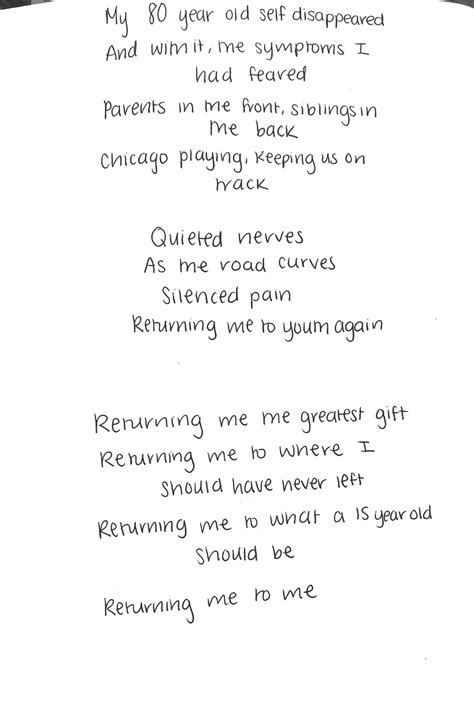 My 80 year old self disappeared
And with it, the symptoms I
had feared
Parents in the front, siblings in
the back
Chicago playing, keeping us on
track
Quieted nerves
As the road curves
Silenced pain
Returning me to youth again
Returning me the greatest gift
Returning me to where I
should have never left
Returning me to what a 15 year old
should be
Returning me to me